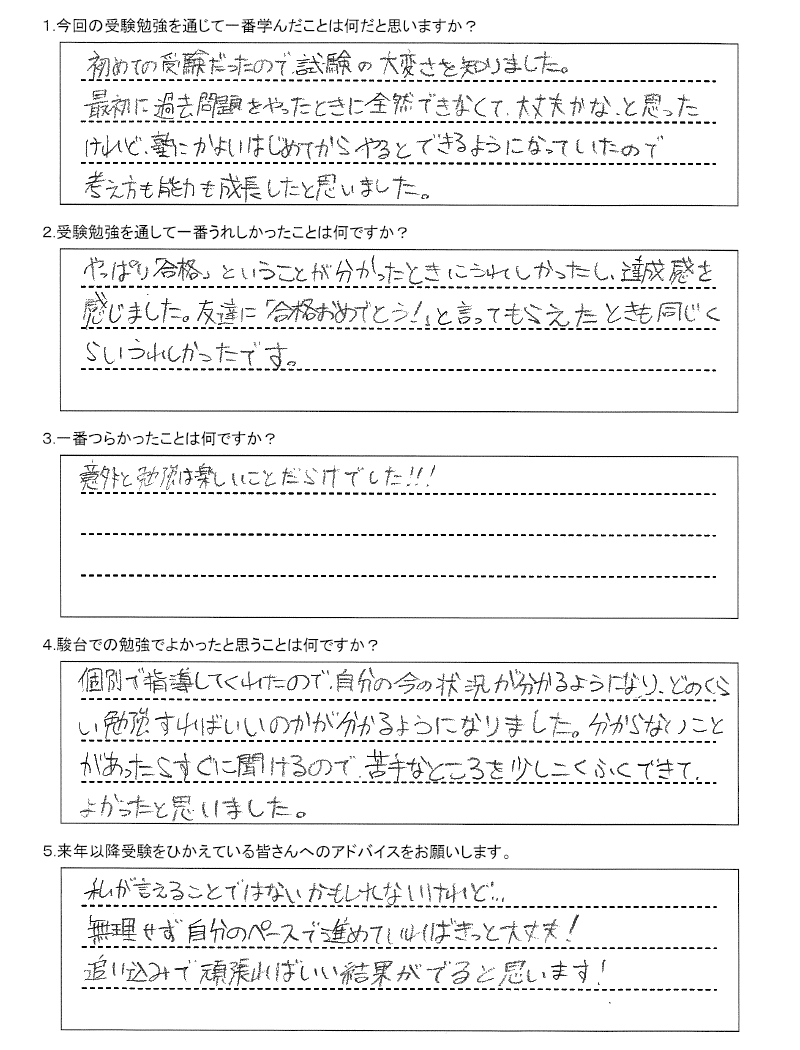 1.今回の受験勉強を通じて一番学んだことは何だと思いますか？
初めての受験だったので、試験の大変さを知りました。
最初に過去問題をやったときに全然できなくて、大丈夫かな、と思った
けれど、塾にかよいはじめてからやるとできるようになっていたので
考え方も能力も成長したと思いました。
2.受験勉強を通して一番うれしかったことは何ですか？
やっぱり「合格」ということが分かったときにうれしかったし、達成感を
感じました。友達に「合格おめでとう！」と言ってもらえたときも同じく
らいうれしかったです。
3.一番つらかったことは何ですか？
意外と勉強は楽しいことだらけでした!!!
4.駿台での勉強でよかったと思うことは何ですか？
個別で指導してくれたので、自分の今の状況が分かるようになり、どのくら
い勉強すればいいのかが分かるようになりました。分からないこと
があったらすぐに聞けるので、苦手なところを少しこくふくできて、
よかったと思いました。
5.来年以降受験をひかえている皆さんへのアドバイスをお願いします。
私が言えることではないかもしれないけれど…
無理せず自分のペースで進めていればきっと大丈夫！
追い込みで頑張ればいい結果がでると思います！